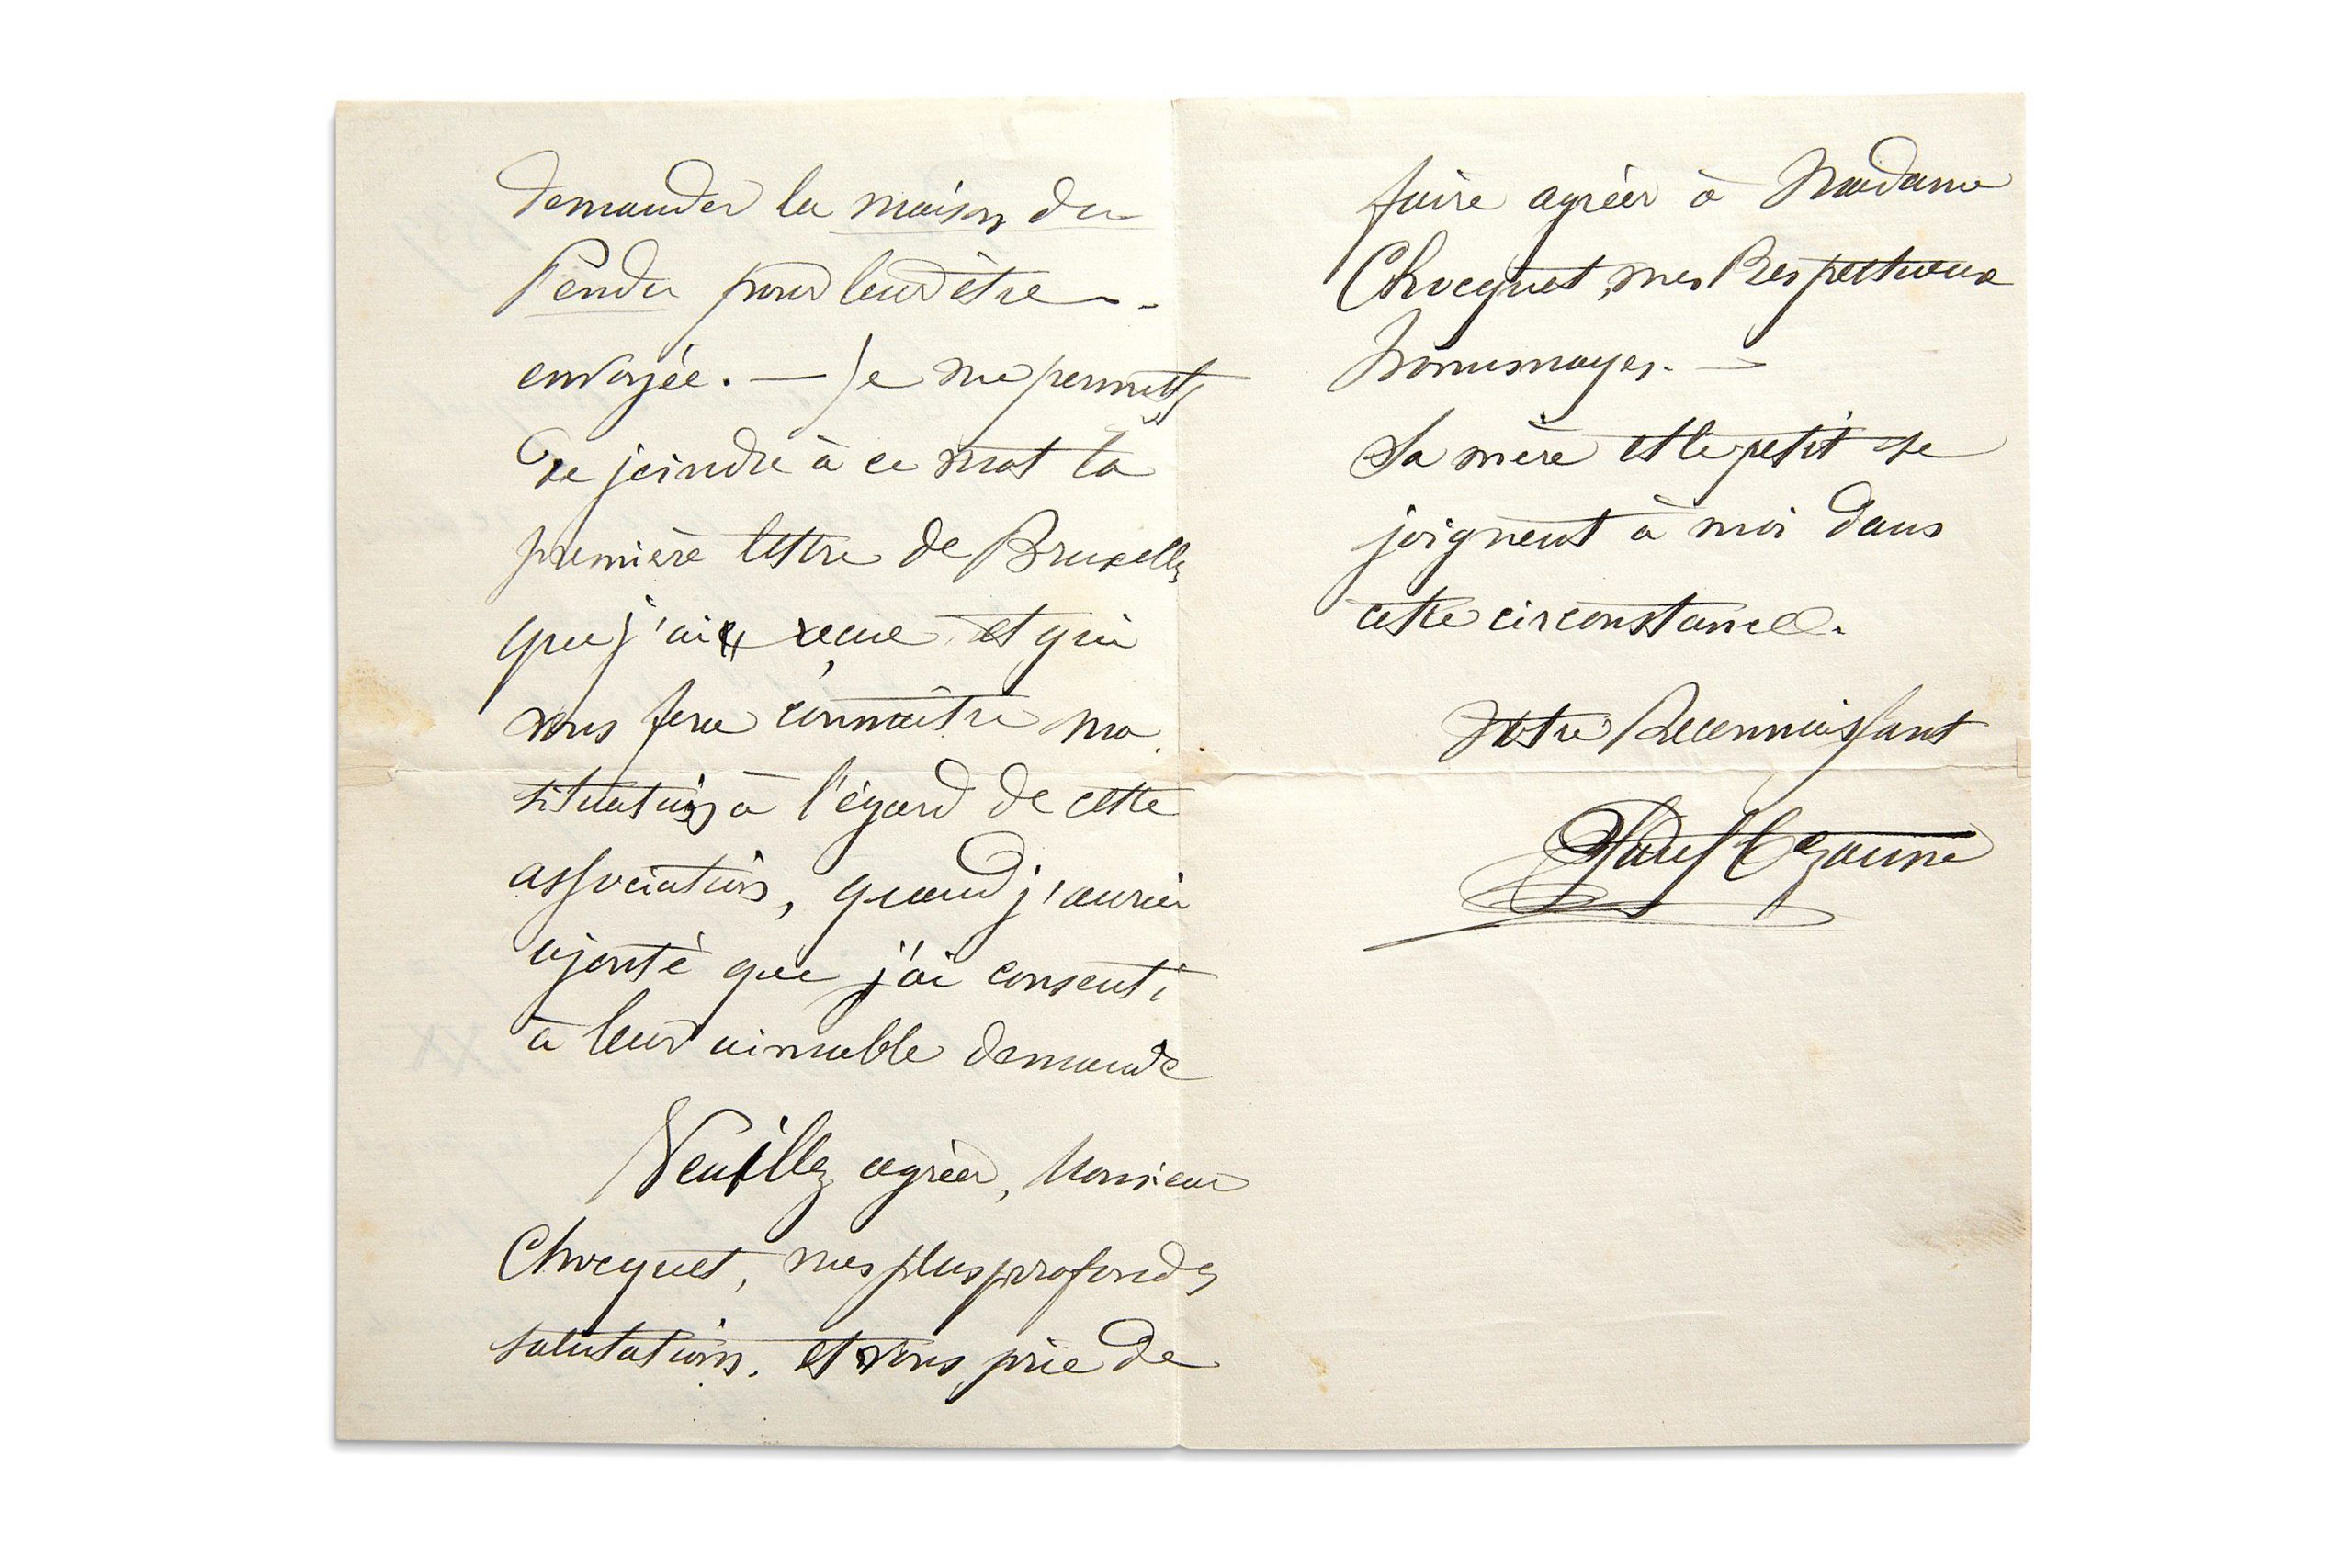 demander la maison du
Pendu pour leur être
envoyée. — Je me permets
de joindre à ce mot la
première lettre de Bruxelles
que j'ai reçue et qui
vous fera connaître ma
situation à l'égard de cette
association, quand j'aurai
ajouté que j'ai consenti
à leur aimable demande
Veuillez agréer, Monsieur
Chocquet, mes plus profondes
salutations. et vous prie de
faire agréer à Madame
Chocquet, mes Respectueux
hommages. —
La mère et le petit se
joignent à moi dans
cette circonstance.
Votre Reconnaissant
Paul Cezanne